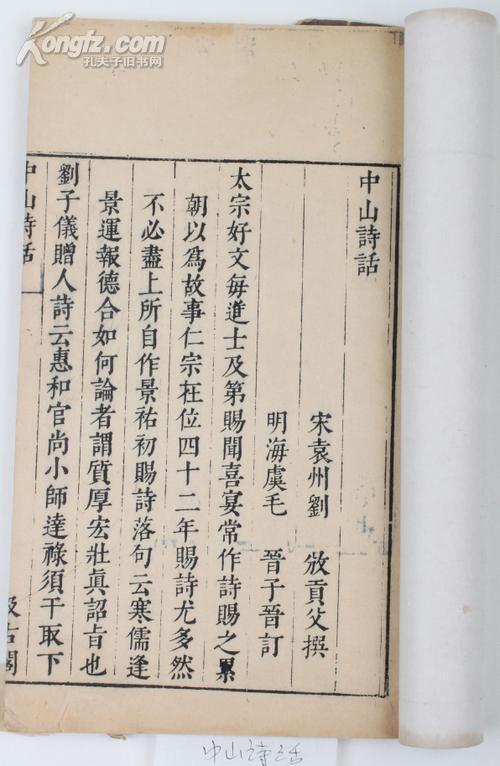 Kongfz.com
孔夫子旧书网
中山詩話
宋袁州劉 攽貢父撰
明海虞毛 晉子晉訂
太宗好文每進士及第賜聞喜宴常作詩賜之累
朝以爲故事仁宗在位四十二年賜詩尤多然
不必盡上所自作景祐初賜詩落句云寒儒逢
景運報德合如何論者謂質厚宏壯眞詔旨也
劉子儀贈人詩云惠和官尚小師達祿須干取下
中山詩話
汲古閣
中山诗话